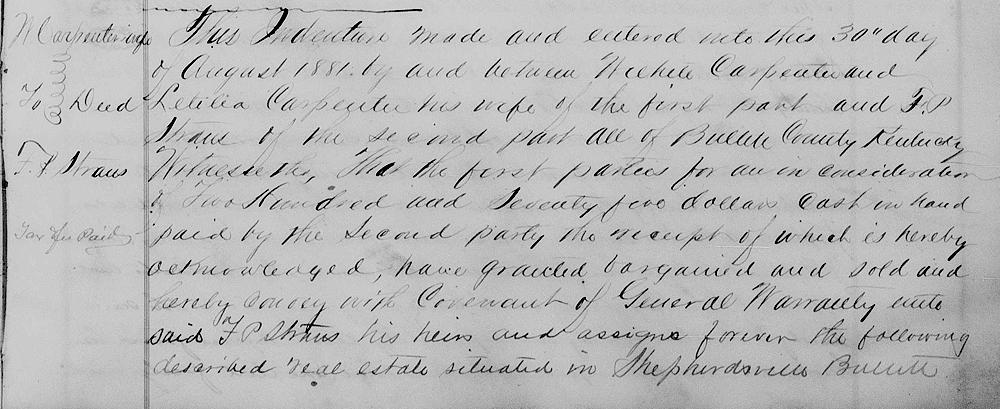 W Carpenter wife
To Deed
F. P Straus
Tax fee Paid
This Indenture made and entered into this 30" day
of August 1881. by and between Carpenter and
Letilia Carpenter his wife of the first part and F. P
Straus of the second part all of Bullitt County Kentucky
Witnesseth, That the first parties for an in consideration
of Two Hundred and Seventy five dollars Cash in hand
paid by the second party the receipt of which is hereby
acknowledged, have granted bargained and sold and
hereby convey with Covenant of General Warranty unto
said F P Straus his heirs and assigns forever the following
described real estate situated in Shepherdsville Bullitt